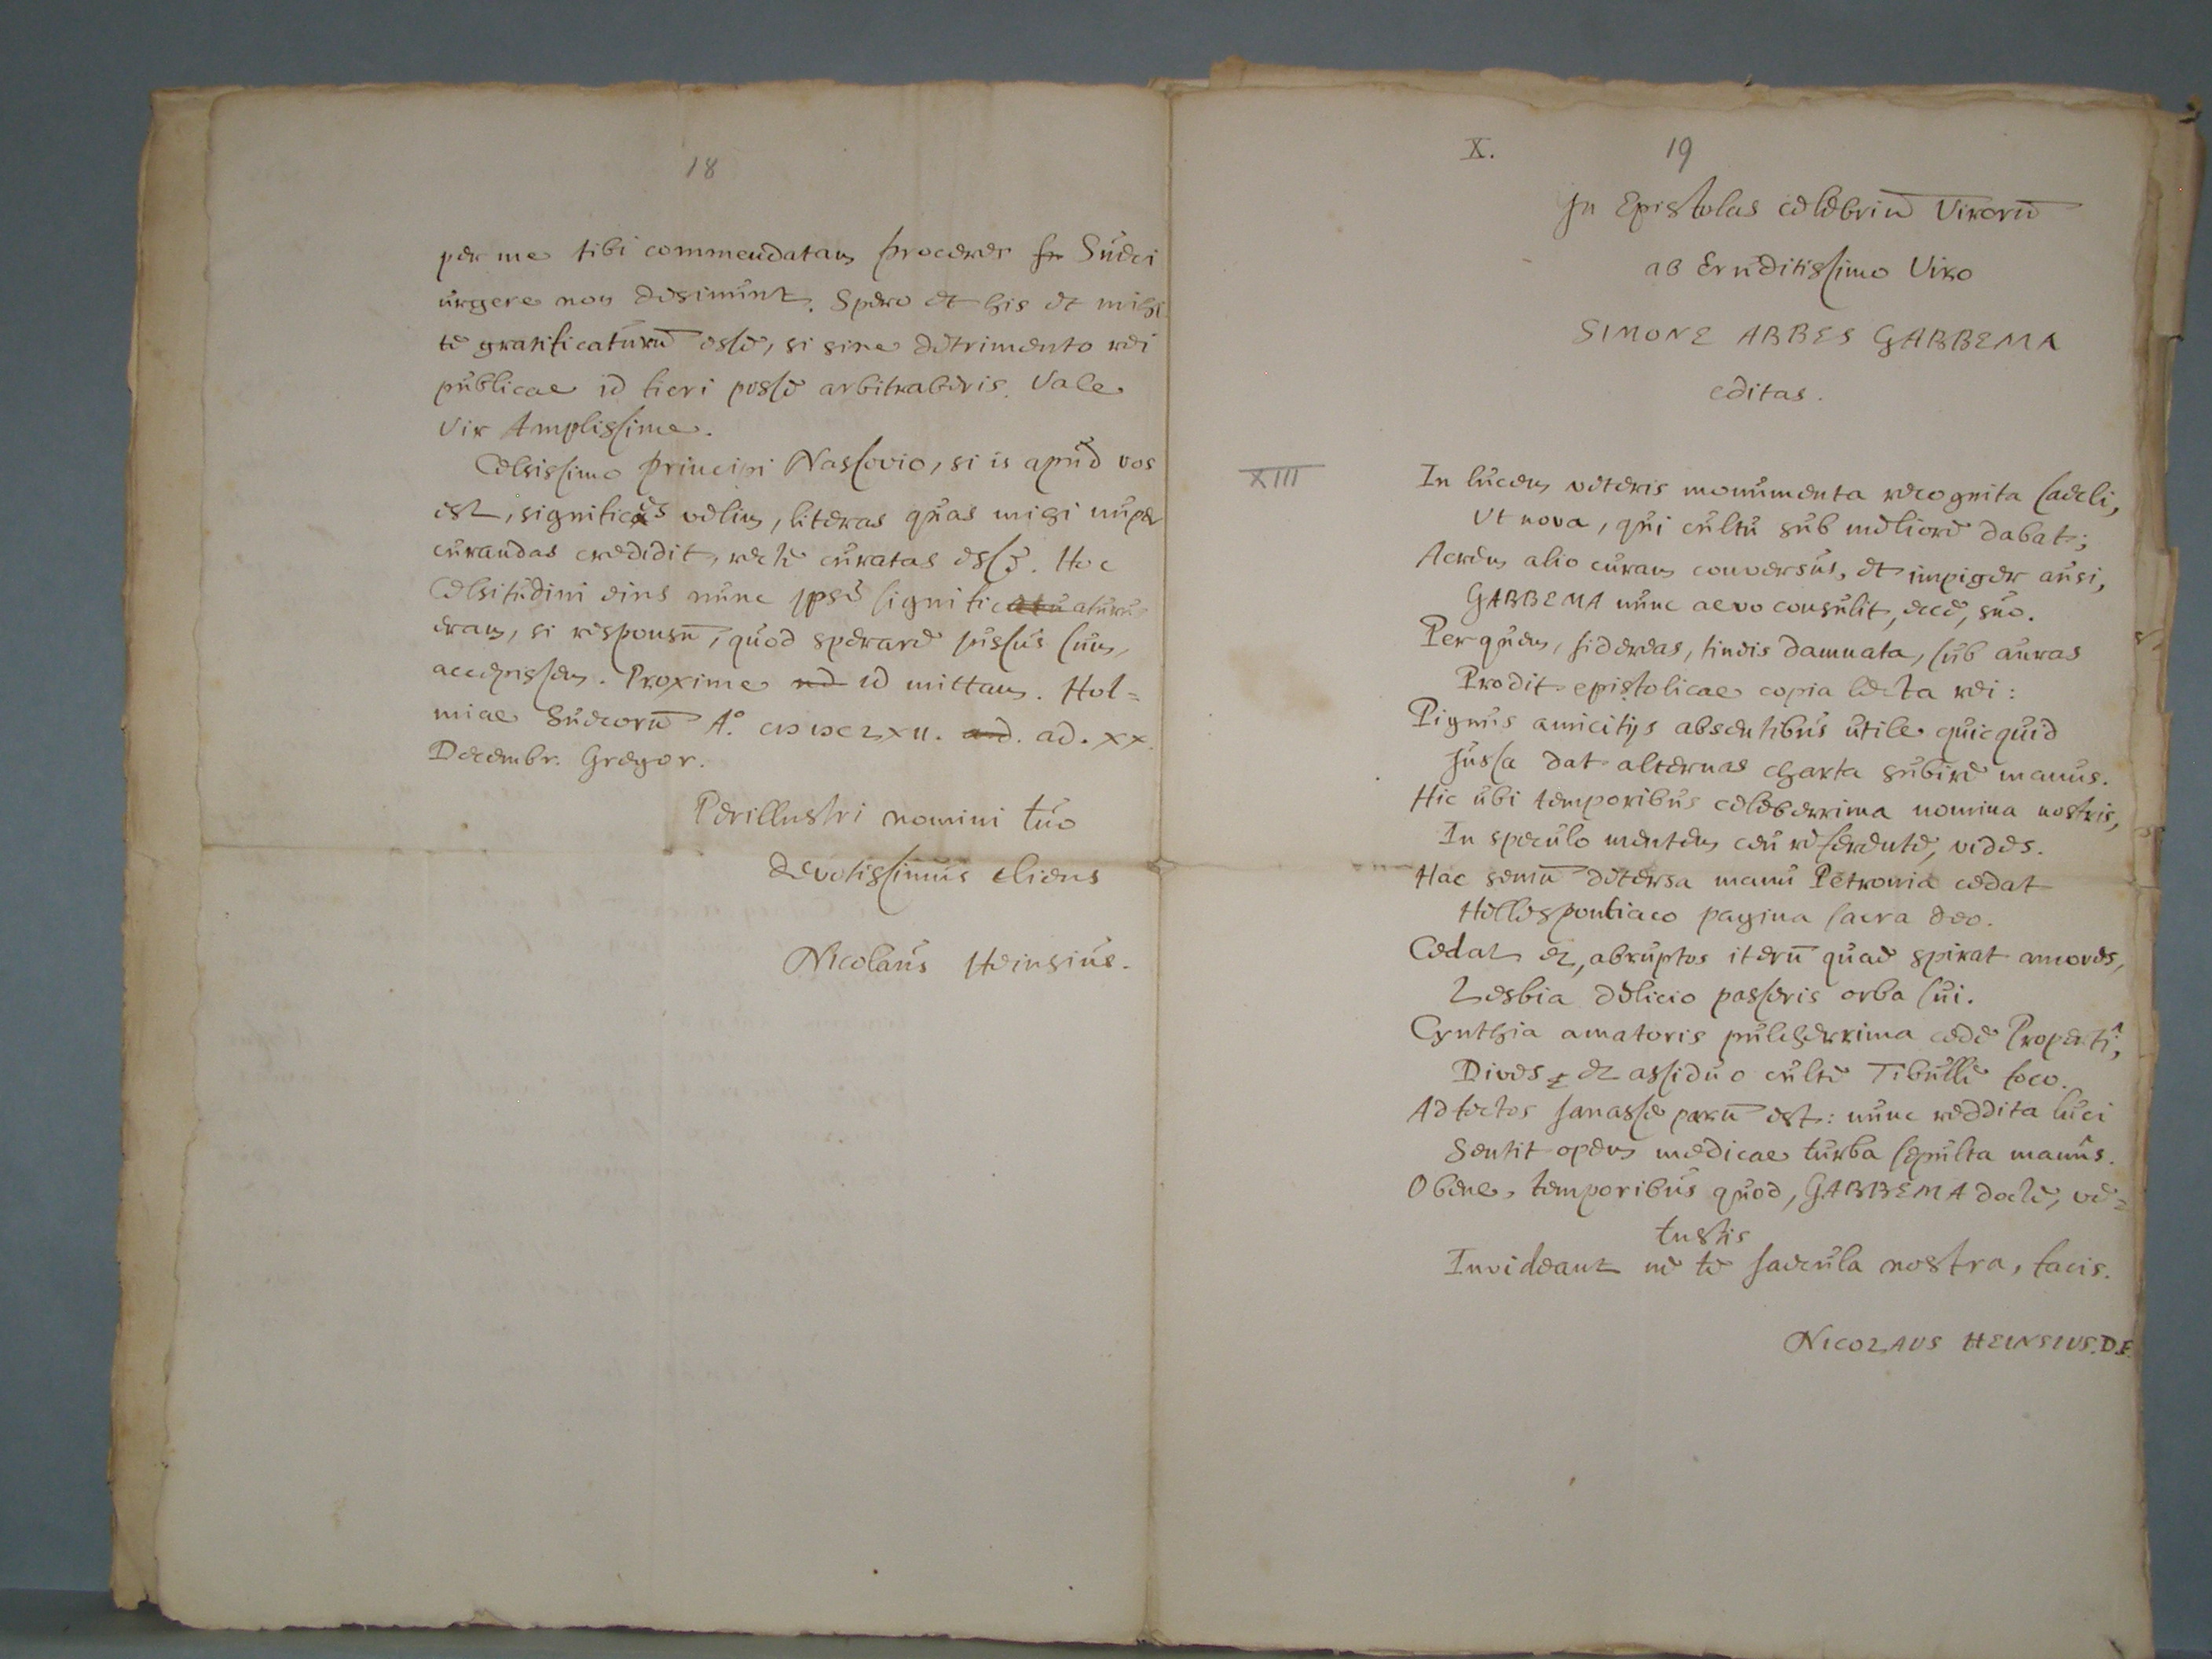 18
per me tibi commendatam proceres Sueci
urgere non desinunt. Spero et his et mihi
te gratificaturū esse, si sine detrimento rei
publicae id fieri posse arbitraberis. Vale
Vir Amplissime.
Celsissimo principi Nassovio, si is apud vos
est, significes velim, literas quas mihi nuper
curandas credidit, recte curatas esse. Hoc
Celsitudini eius nunc ipse significaturus
eram, si responsū, quod sperare jussus sum,
accepissem. Proxime id mittam. Hol=
miae Suecorū A.° CIƆ IƆC LXII. ad. XX.
Decembr. Gregor.
Perillustri nomini tuo
devotissimus cliens
Nicolaus Heinsius.
X. 19
In Epistolas celebriū Virorū
ab Eruditissimo Viro
SIMONE ABBES GABBEMA
editas.
XIII
In lucem veteris monumenta recognita saecli,
Ut nova, qui cultu sub meliore dabat;
Acrem alio curam conversus, et impiger ausi,
GABBEMA nunc aevo consulit, ecce, suo.
Per quem, sidereas, tineis damnata, sub auras
Prodit epistolicae copia lecta rei:
Pignus amicitijs absentibus utile quicquid
Jussa dat alternas charta subire manus.
Hic ubi temporibus celeberrima nomina nostris,
In speculo mentem ceu referente, vides.
Hac semū detersa manu Petronia cedat
Hellespontiaco pagina sacra deo.
Cedat et, abruptos iterū quae spirat amores,
Lesbia delicio passeris orba sui.
Cynthia amatoris pulcherrima cede Propertî,
Dives et assiduo culte Tibulle foco.
Adfectos sanasse parū est: nunc reddita luci
Sentit opem medicae turba sepulta manûs.
O bene, temporibus quod, GABBEMA docte, ve=
tustis
Invideant ne te saecula nostra, facis.
NICOLAUS HEINSIUS. D.F.